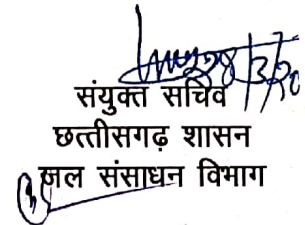 संयुक्त सचिव
छत्तीसगढ़ शासन
जल संसाधन विभाग